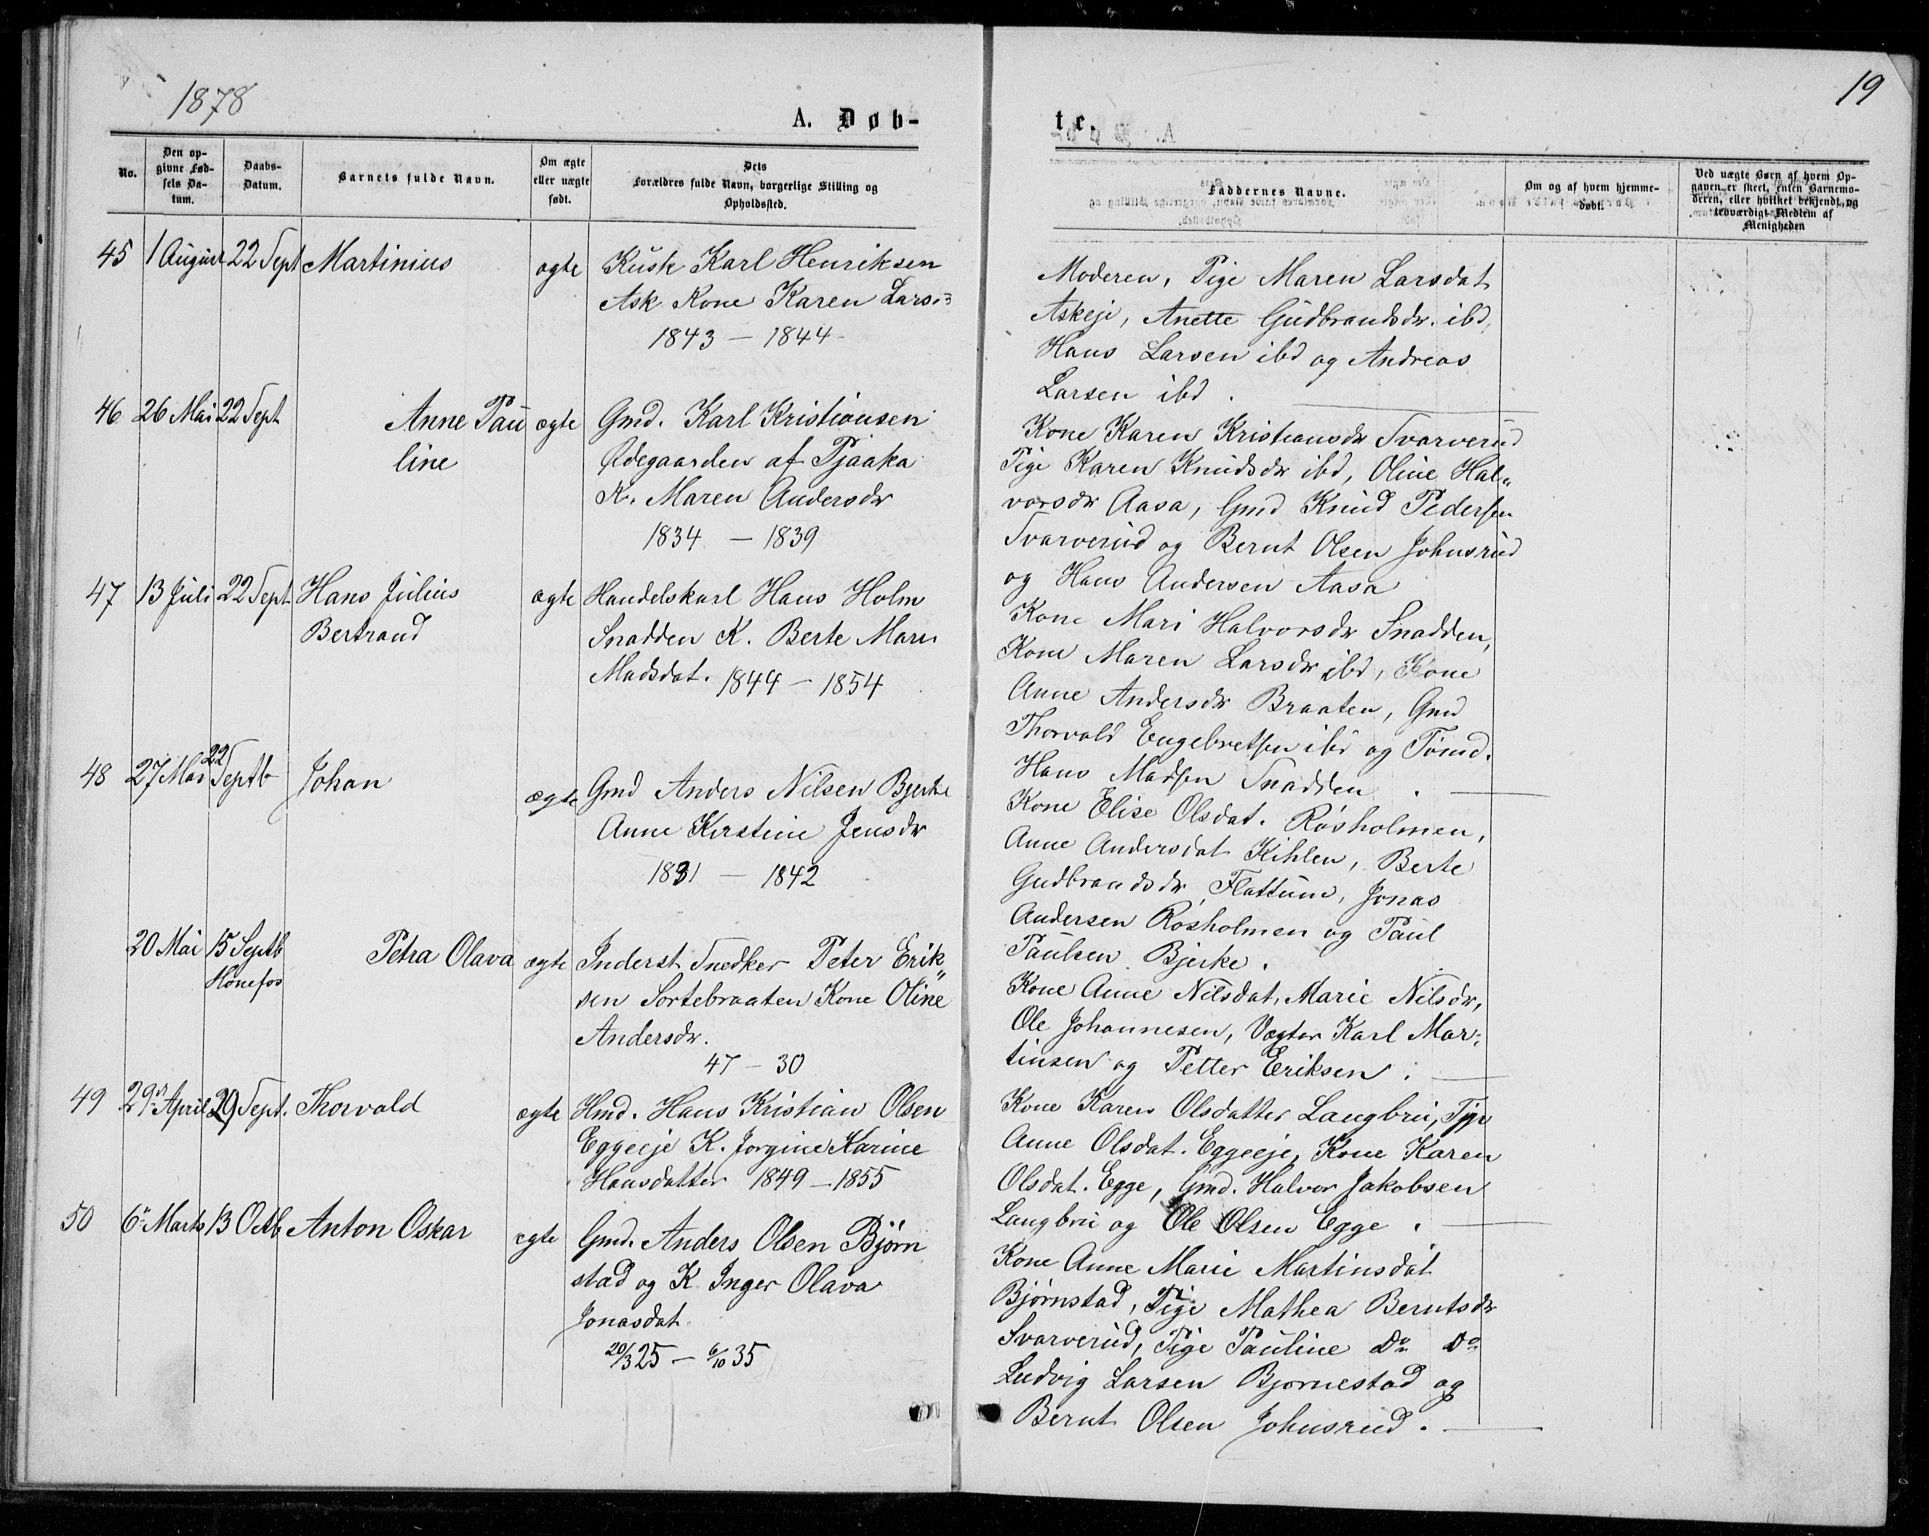 1878
19
A. Døb-
te.
No.
Den op-
givne Fød-
sels Da-
tum.
Daabs-
Datum.
Barnets fulde Navn.
Om ægte
eller uægte
født.
Dets
Forældres fulde Navn, borgerlige Stilling og
Opholdssted.
Faddernes Navne.
Om og af hvem hjemme-
døbt.
Ved uægte Børn af hvem Op-
gaven er skeet, enten Barnemo-
deren, eller hvilket bekjendt og
troværdigt Medlem af
Menigheden
45 1 August 22 Sept Martinius ægte Kusk Karl Henriksen
Ask Kone Karen Larsd
1843 — 1844
Moderen, Pige Maren Larsdat
Askeje, Anette Gudbrandsdr. ibd,
Hans Larsen ibd og Andreas
Larsen ibd.
46 26 Mai 22 Sept Anne Pau ægte Gmd. Karl Kristiansen
line Ødegaarden af Pjaaka
K. Maren Andersdr
1834 — 1839
Kone Karen Kristiansdr Svarverud
Pige Karen Knudsdr ibd, Oline Hal„
vorsdr Aasa, Gmd Knud Pedersen
Svarverud og Bernt Olsen Johnsrud
og Hans Andersen Aasa
47 13 Juli 22 Sept Hans Julius ægte Handelskarl Hans Holm
Bertrand Snadden K. Berte Marie
Madsdat. 1844 — 1854
Kone Mari Halvorsdr Snadden,
Kone Maren Larsdr ibd, Kone
Anne Andersdr Braaten, Gmd
Thorvald Engebretsen ibd og Tømd.
Hans Madsen Snadden.
48 27 Mai 22 Septb Johan ægte Gmd Anders Nilsen Bjerke
Anne Kirstine Jensdr
1831 — 1842
Kone Elise Olsdat. Røsholmen,
Anne Andersdat Kihlen, Berte
Gudbrandsdr Flattum, Jonas
Andersen Røsholmen og Paul
Paulsen Bjerke.
20 Mai 15 Septb Petra Olava ægte Inderst Snedker Peter Erik„
Hønefos sen Sortebraaten Kone Oline
Andersdr.
47 — 30
Kone Anne Nilsdat, Marie Nilsdr,
Ole Johannesen, Vægter Karl Mar-
tinsen og Petter Eriksen.
49 29 April 29 Sept. Thorvald ægte Hmd. Hans Kristian Olsen
Eggeeje K. Jorgine Karine
Hansdatter 1849 — 1855
Kone Karen Olsdatter Langbru,
Anne Olsdat. Eggeeje, Kone Karen
Olsdat. Egge, Gmd. Halvor Jakobsen
Langbru og Ole Olsen Egge.
50 6 Marts 13 Octb Anton Oskar ægte Gmd. Anders Olsen Bjørn
stad og K Inger Olava
Jonasdat.
20/3 25 — 6/10 35
Kone Anne Marie Martinsdat
Bjørnstad, Pige Mathea Berntsdr
Svarverud, Pige Pauline Do Do
Ludvig Larsen Bjørnestad og
Bernt Olsen Johnsrud.